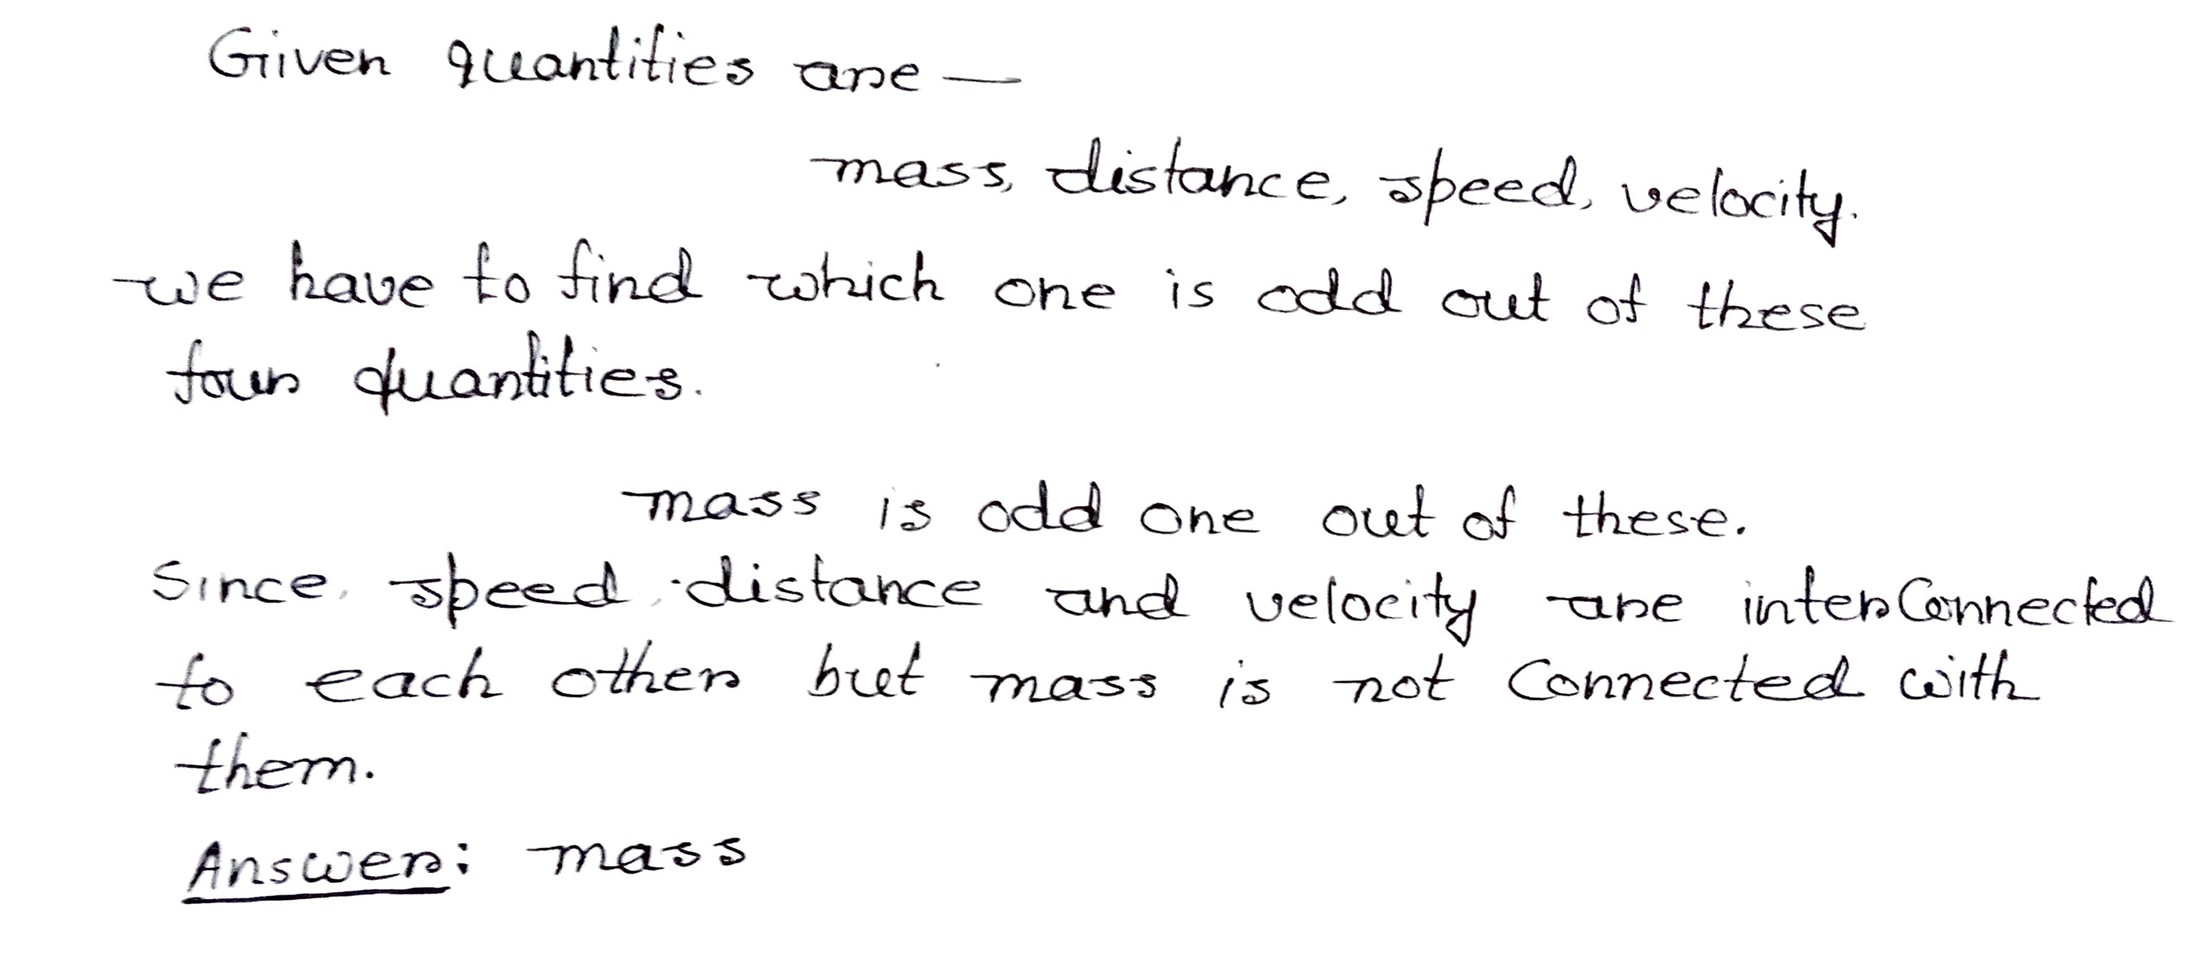 Given quantities are —
mass, distance, speed, velocity.
we have to find which one is odd out of these
four quantities.
mass is odd one out of these.
Since, speed, distance and velocity are interConnected
to each other but mass is not Connected with
them.
Answer: mass